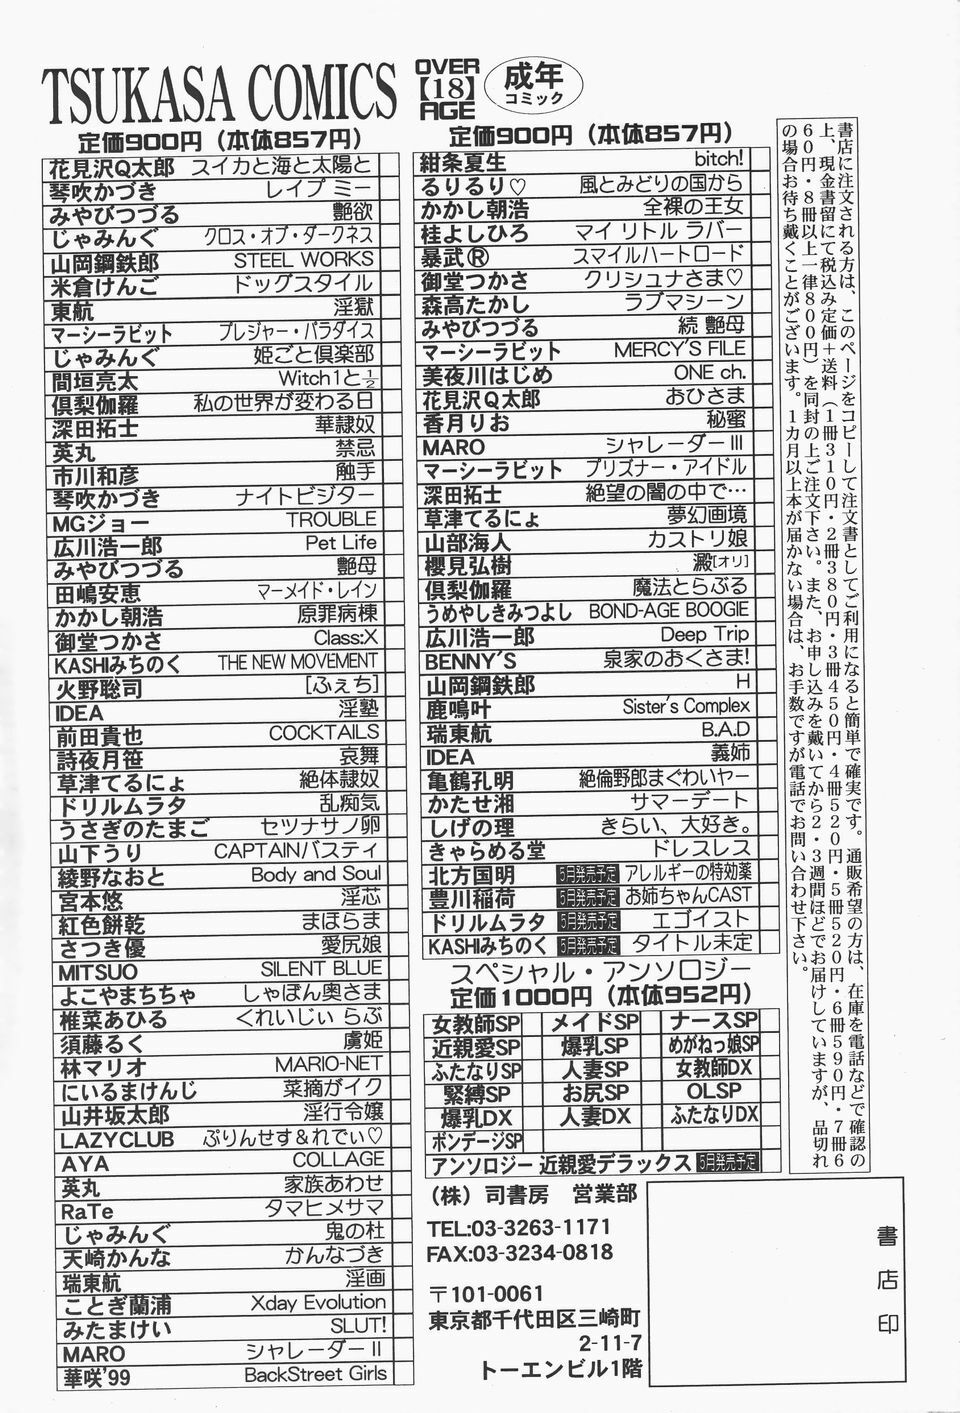 TSUKASA COMICS
OVER
【18】
AGE
成年
コミック
定価900円（本体857円）
花見沢Q太郎 スイカと海と太陽と
琴吹かづき レイプ ミー
みやびつづる 艶欲
じゃみんぐ クロス・オブ・ダークネス
山岡鋼鉄郎 STEEL WORKS
米倉けんご ドッグスタイル
東航 淫獄
マーシーラビット プレジャー・パラダイス
じゃみんぐ 姫ごと倶楽部
間垣亮太 Witch1と1/2
倶梨伽羅 私の世界が変わる日
深田拓士 華隷奴
英丸 禁忌
市川和彦 触手
琴吹かづき ナイトビジター
MGジョー TROUBLE
広川浩一郎 Pet Life
みやびつづる 艶母
田嶋安恵 マーメイド・レイン
かかし朝浩 原罪病棟
御堂つかさ Class:X
KASHIみちのく THE NEW MOVEMENT
火野聡司 [ふぇち]
IDEA 淫塾
前田貴也 COCKTAILS
詩夜月笹 哀舞
草津てるにょ 絶体隷奴
ドリルムラタ 乱痴気
うさぎのたまご セツナサノ卵
山下うり CAPTAINバスティ
綾野なおと Body and Soul
宮本悠 淫芯
紅色餅乾 まほらま
さつき優 愛尻娘
MITSUO SILENT BLUE
よこやまちちゃ しゃぼん奥さま
椎菜あひる くれいじぃ らぶ
須藤るく 虜姫
林マリオ MARIO-NET
にいるまけんじ 菜摘がイク
山井坂太郎 淫行令嬢
LAZYCLUB ぷりんせす&れでぃ♡
AYA COLLAGE
英丸 家族あわせ
RaTe タマヒメサマ
じゃみんぐ 鬼の杜
天崎かんな かんなづき
瑞東航 淫画
ことぎ蘭浦 Xday Evolution
みたまけい SLUT!
MARO シャレーダーⅡ
華咲'99 BackStreet Girls
定価900円（本体857円）
紺条夏生 bitch!
るりるり♡ 風とみどりの国から
かかし朝浩 全裸の王女
桂よしひろ マイ リトル ラバー
暴武Ⓡ スマイルハートロード
御堂つかさ クリシュナさま♡
森高たかし ラブマシーン
みやびつづる 続 艶母
マーシーラビット MERCY'S FILE
美夜川はじめ ONE ch.
花見沢Q太郎 おひさま
香月りお 秘蜜
MARO シャレーダーⅢ
マーシーラビット プリズナー・アイドル
深田拓士 絶望の闇の中で…
草津てるにょ 夢幻画境
山部海人 カストリ娘
櫻見弘樹 澱[オリ]
倶梨伽羅 魔法とらぶる
うめやしきみつよし BOND-AGE BOOGIE
広川浩一郎 Deep Trip
BENNY'S 泉家のおくさま!
山岡鋼鉄郎 H
鹿鳴叶 Sister's Complex
瑞東航 B.A.D
IDEA 義姉
亀鶴孔明 絶倫野郎まぐわいヤー
かたせ湘 サマーデート
しげの理 きらい、大好き。
きゃらめる堂 ドレスレス
北方国明 5月発売予定 アレルギーの特効薬
豊川稲荷 5月発売予定 お姉ちゃんCAST
ドリルムラタ 5月発売予定 エゴイスト
KASHIみちのく 5月発売予定 タイトル未定
スペシャル・アンソロジー
定価1000円（本体952円）
女教師SP メイドSP ナースSP
近親愛SP 爆乳SP めがねっ娘SP
ふたなりSP 人妻SP 女教師DX
緊縛SP お尻SP OLSP
爆乳DX 人妻DX ふたなりDX
ボンデージSP
アンソロジー 近親愛デラックス 5月発売予定
（株）司書房 営業部
TEL:03-3263-1171
FAX:03-3234-0818
〒101-0061
東京都千代田区三崎町
2-11-7
トーエンビル1階
書店に注文される方は、このページをコピーして注文書としてご利用になると簡単で確実です。通販希望の方は、在庫を電話などで確認の
上、現金書留にて税込み定価＋送料（１冊３１０円・２冊３８０円・３冊４５０円・４冊５２０円・５冊５２０円・６冊５９０円・７冊６
６０円・８冊以上一律８００円）を同封の上ご注文下さい。また、お申し込みを戴いてから２・３週間ほどでお届けしていますが、品切れ
の場合お待ち戴くことがございます。１カ月以上本が届かない場合は、お手数ですが電話でお問い合わせ下さい。
書店印